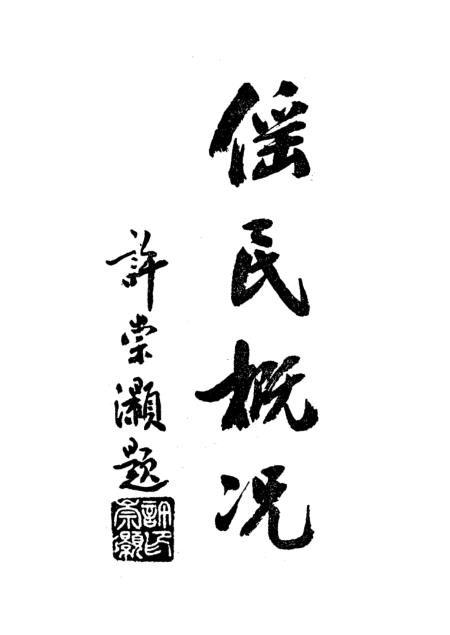 傜民概况
許崇灝題
許崇灝印